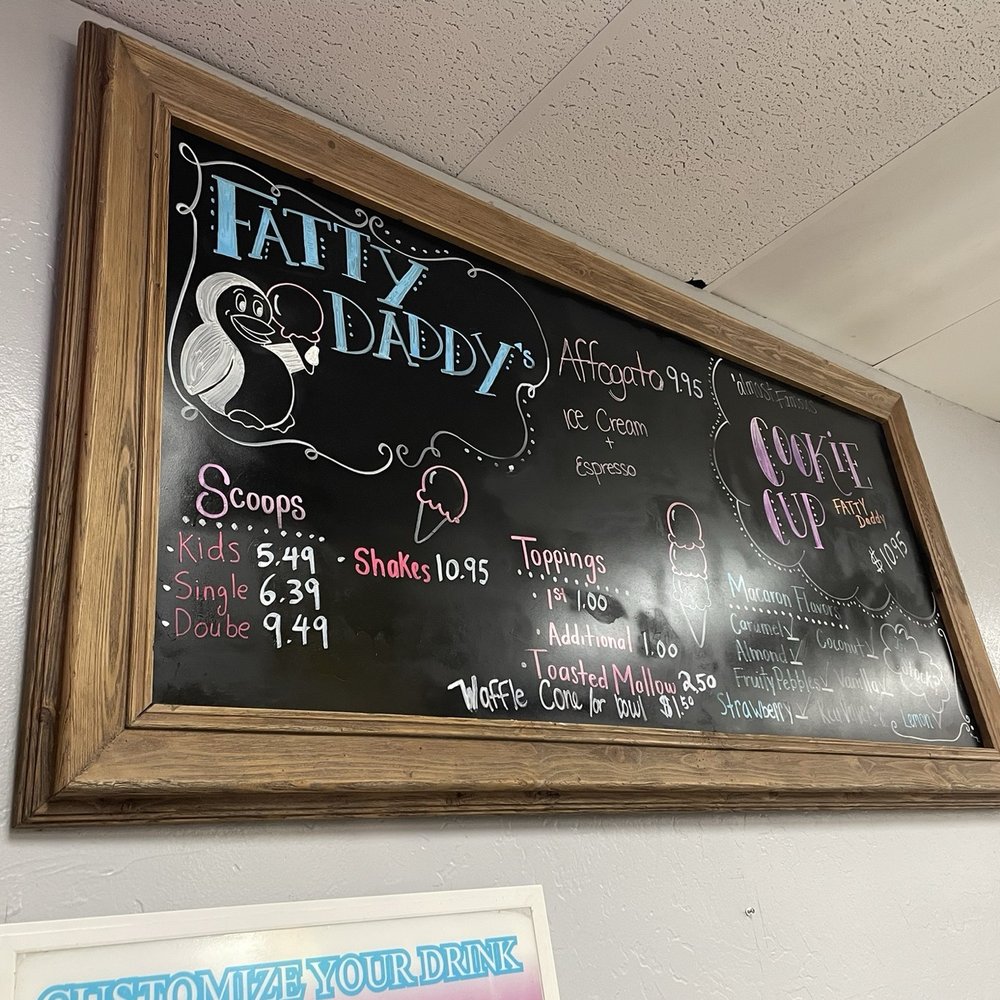 FATTY
DADDY's
Scoops
· Kids 5.49
· Single 6.39
· Doube 9.49
· Shakes 10.95
Affogato 9.95
Ice Cream
+
Espresso
Toppings
· 1st 1.00
· Additional 1.00
· Toasted Mollow 2.50
Waffle Cone /or bowl $1.50
COOKiE
CUP
FATTY
Daddy
$10.95
Macaron Flavors
Caramel Coconut
Almond
Fruity Pebbles Vanilla
Strawberry
Lemon
CUSTOMIZE YOUR DRINK